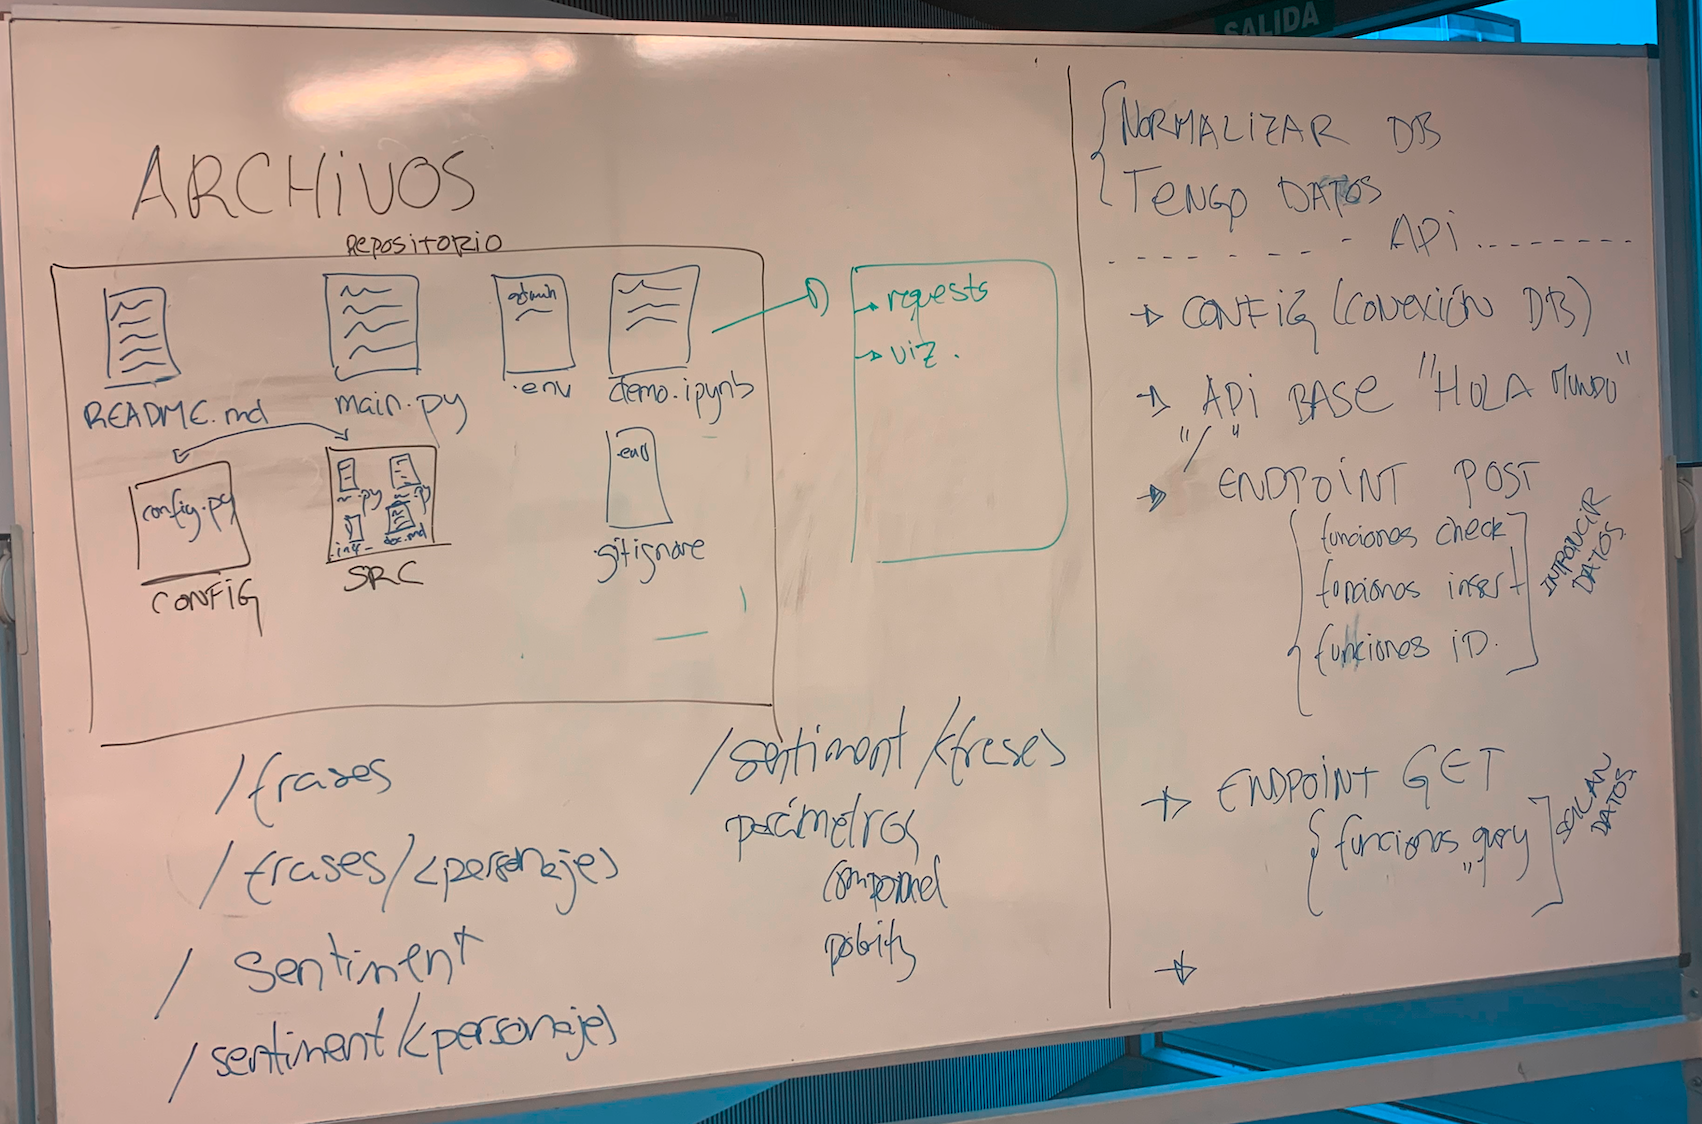 SALIDA
ARCHIVOS
Repositorio
README.md
main.py
.env
demo.ipynb
config.py
CONFIG
.py
.py
doc.md
SRC
.env
.gitignore
→ requests
→ viz.
/frases
/frases/<personajes
/sentiment
/sentiment/<personajes
/sentiment/<frases
parámetros
compound
NORMALIZAR DB
TENGO DATOS
API
→ CONFIG (CONEXIÓN DB)
→ API BASE "HOLA MUNDO"
"/"
→ ENDPOINT POST
funciones check
funciones insert
funciones iD.
INTRODUCIR
DATOS
→ ENDPOINT GET
funciones query
DATOS
→